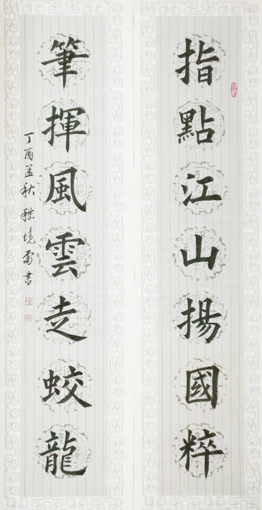 指點江山揚國粹
筆揮風雲走蛟龍
丁酉孟秋
書